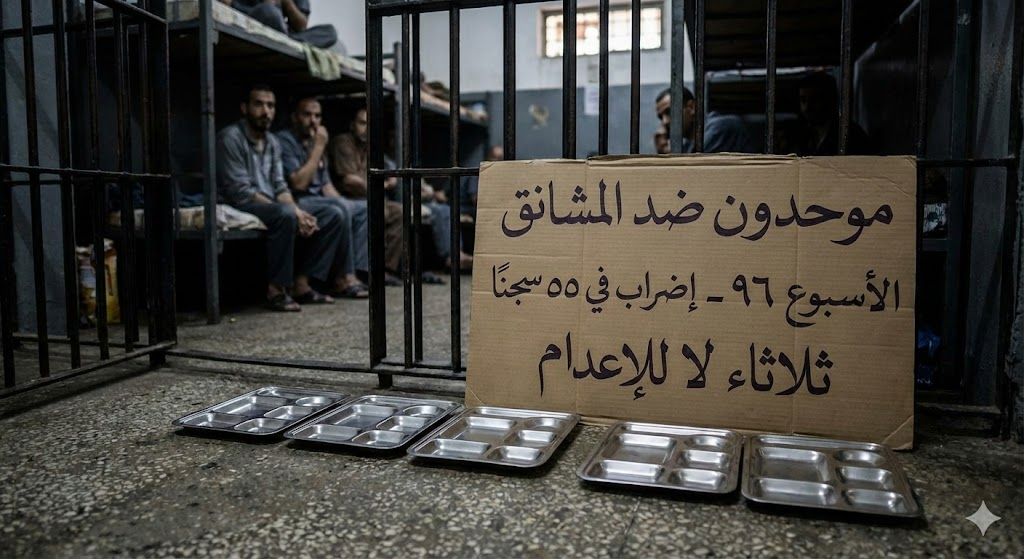 موحدون ضد المشانق
الأسبوع ٩٦ - إضراب في ٥٥ سجنًا
ثلاثاء لا للإعدام